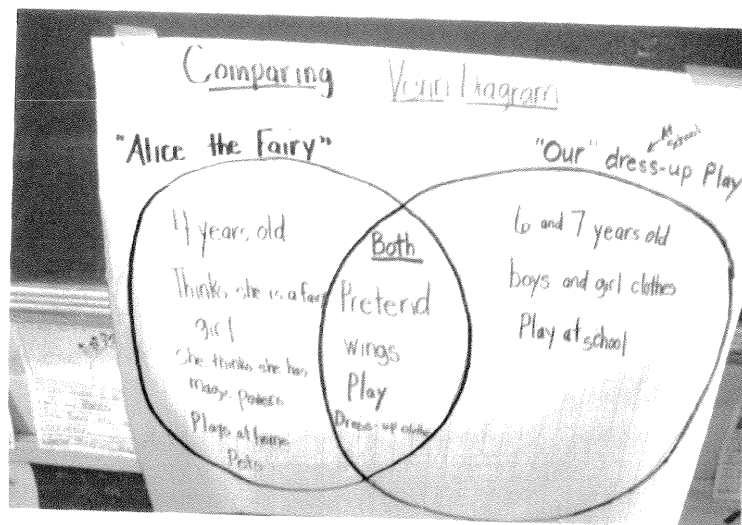 Comparing Venn Diagram
"Alice the Fairy"
4 years old
Thinks she is a fairy
girl
She thinks she has
magic powers
Plays at home
Pets
Both
Pretend
wings
Play
Dress-up clothes
"Our" dress-up Play
6 and 7 years old
boys and girl clothes
Play at school